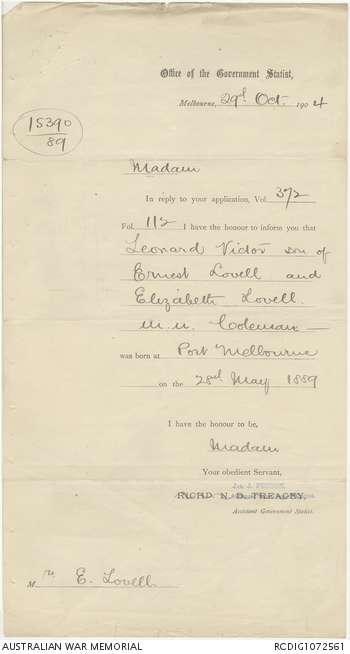 Office of the Government Statist,
Melbourne, 29th Oct. 1904
15390
89
Madam
In reply to your application, Vol. 372
Fol. 112 I have the honour to inform you that
Leonard Victor son of
Ernest Lovell and
Elizabeth Lovell.
m.n. Coleman —
was born at Port Melbourne
on the 28th May 1889
I have the honour to be,
Madam
Your obedient Servant,
RICHD N. D. TREACEY,
Assistant Government Statist.
Mrs E. Lovell.
AUSTRALIAN WAR MEMORIAL
RCDIG1072561